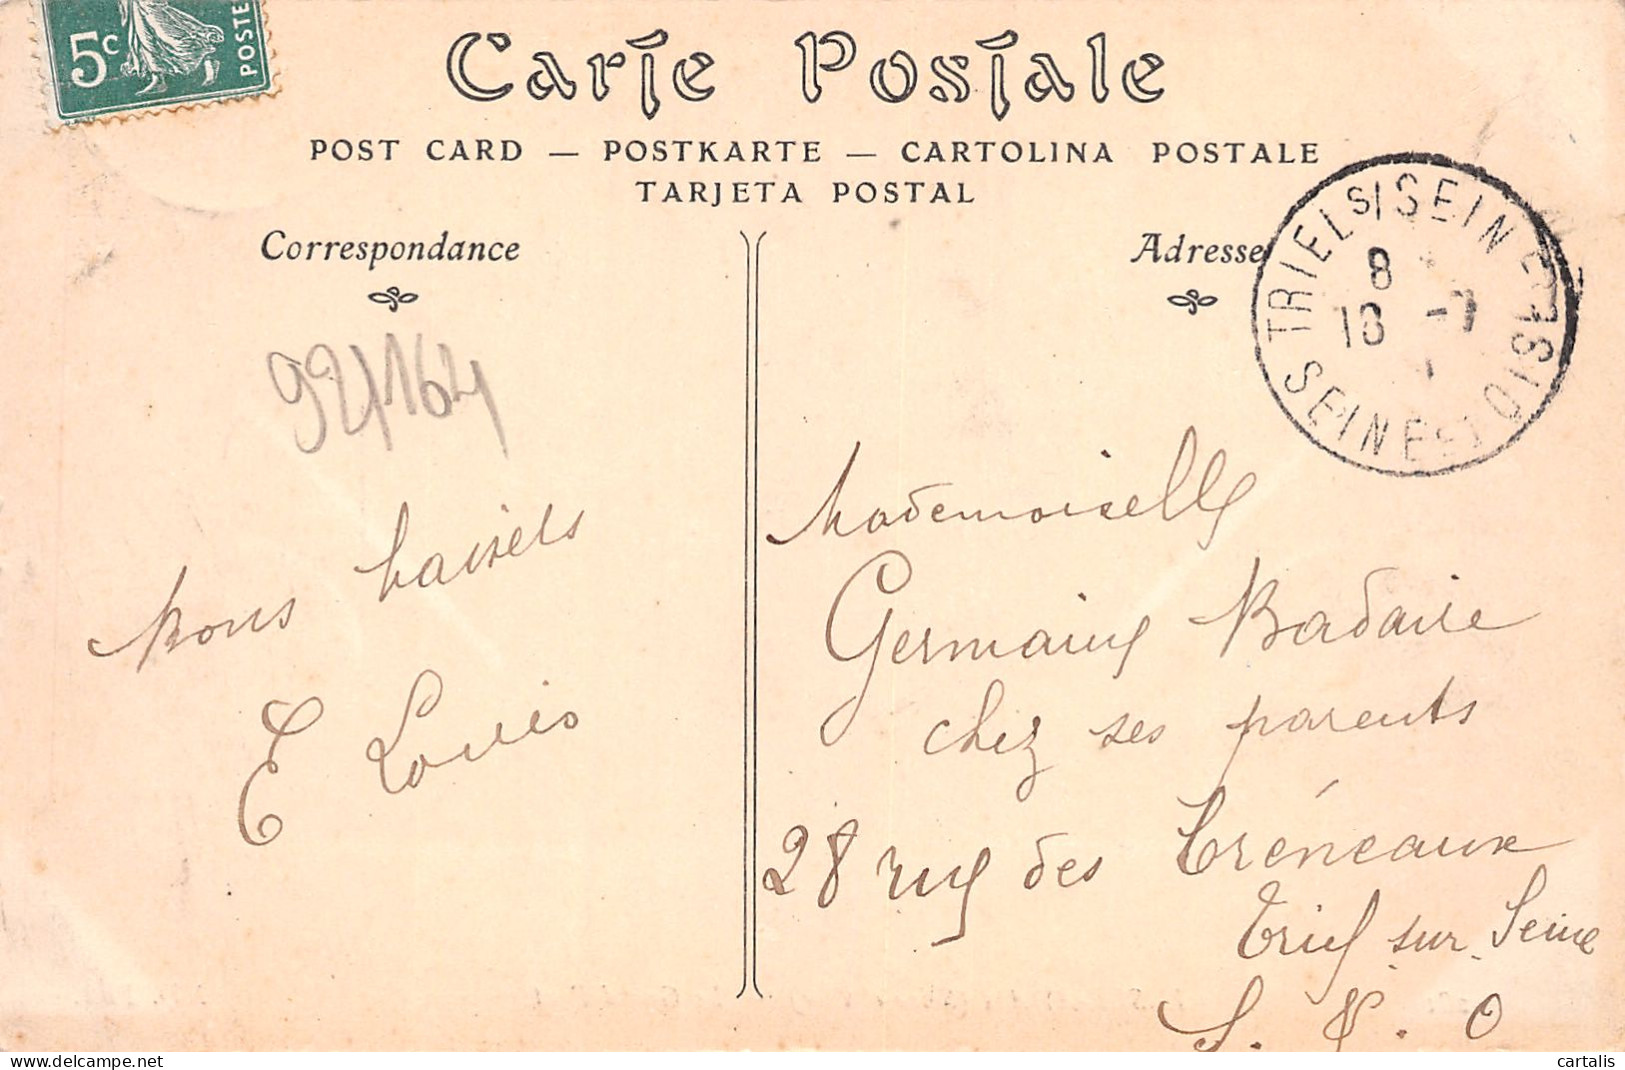 5c
POSTE
Carte Postale
POST CARD — POSTKARTE — CARTOLINA POSTALE
TARJETA POSTAL
Correspondance
Adresse
TRIEL S/ SEINE
8
18 -7
SEINE ET OISE
92/164
Bons baisers
E Louis
Mademoiselle
Germaine Badaire
chez ses parents
28 rue des Créneaux
Triel sur Seine
S. & . O
cartalis